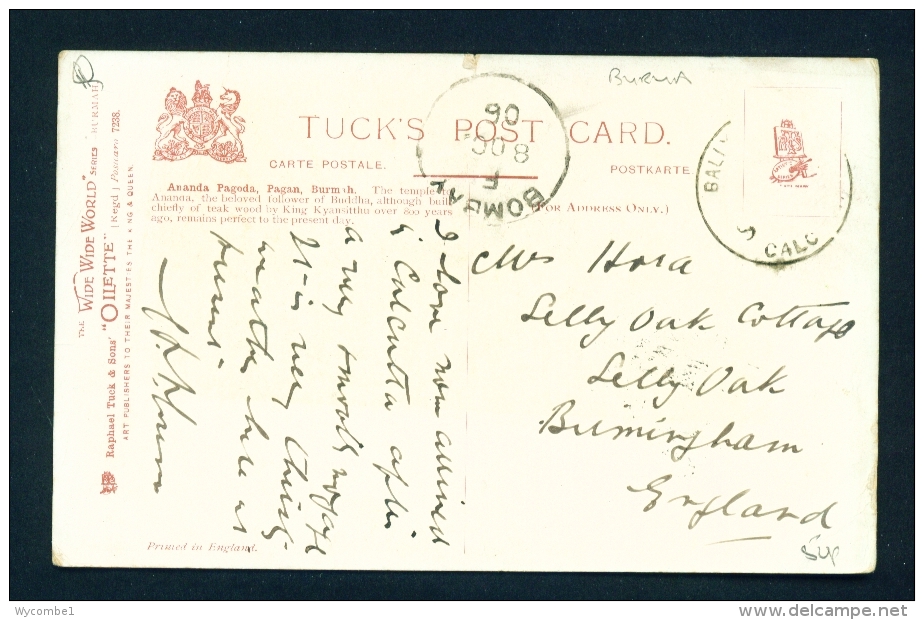 BURMA
TUCK'S POST CARD.
CARTE POSTALE.
POSTKARTE
(FOR ADDRESS ONLY.)
Ananda Pagoda, Pagan, Burmah. The temple
Ananda, the beloved follower of Buddha, although buil
chiefly of teak wood by King Kyansitthu over 800 years
ago, remains perfect to the present day.
THE "WIDE WIDE WORLD" SERIES "BURMAH"
Raphael Tuck & Sons' "OILETTE" [Regd] Postcard 7238.
ART PUBLISHERS TO THEIR MAJESTIES THE KING & QUEEN.
BOMBAY
F
8 OC
06
BALI
CALC
I have now arrived
Calcutta after
a very smooth voyage
It is very
weather here at
Mrs Hora
Selly Oak Cottage
Selly Oak
Birmingham
England
Printed in England.
Wycombe1
www.delcampe.net